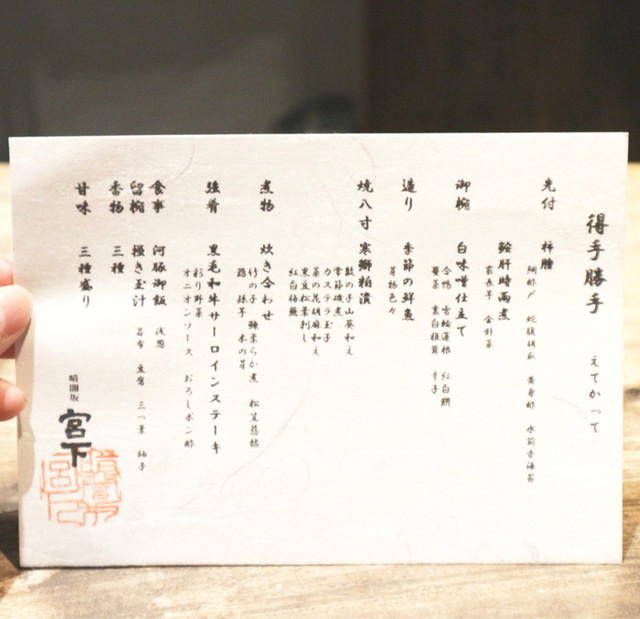 得手勝手 えてかって
先付 柿膾
鯛酢〆 蛇腹胡瓜 黄身酢 水前寺海苔
鮟肝時雨煮
雲長芋 金針菜
御椀 白味噌仕立て
合鴨 雪輪蓮根 紅白餅
蟹菜 裏白椎茸 辛子
造り 季節の鮮魚
芽物色々
焼八寸 寒鰤粕漬
数の子山葵和え
常節磯煮
カステラ玉子
菜の花胡麻和え
黒豆松葉刺し
紅白梅鰻
煮物 炊き合わせ
竹の子 柔らか煮 松笠慈姑
蕗 孫芋 木の芽
強肴 黒毛和牛サーロインステーキ
彩り野菜
オニオンソース おろしポン酢
食事 河豚御飯 浅葱
留椀 掻き玉汁 若布 豆腐 三つ葉 柚子
香物 三種
甘味 三種盛り
暗闇坂 宮下